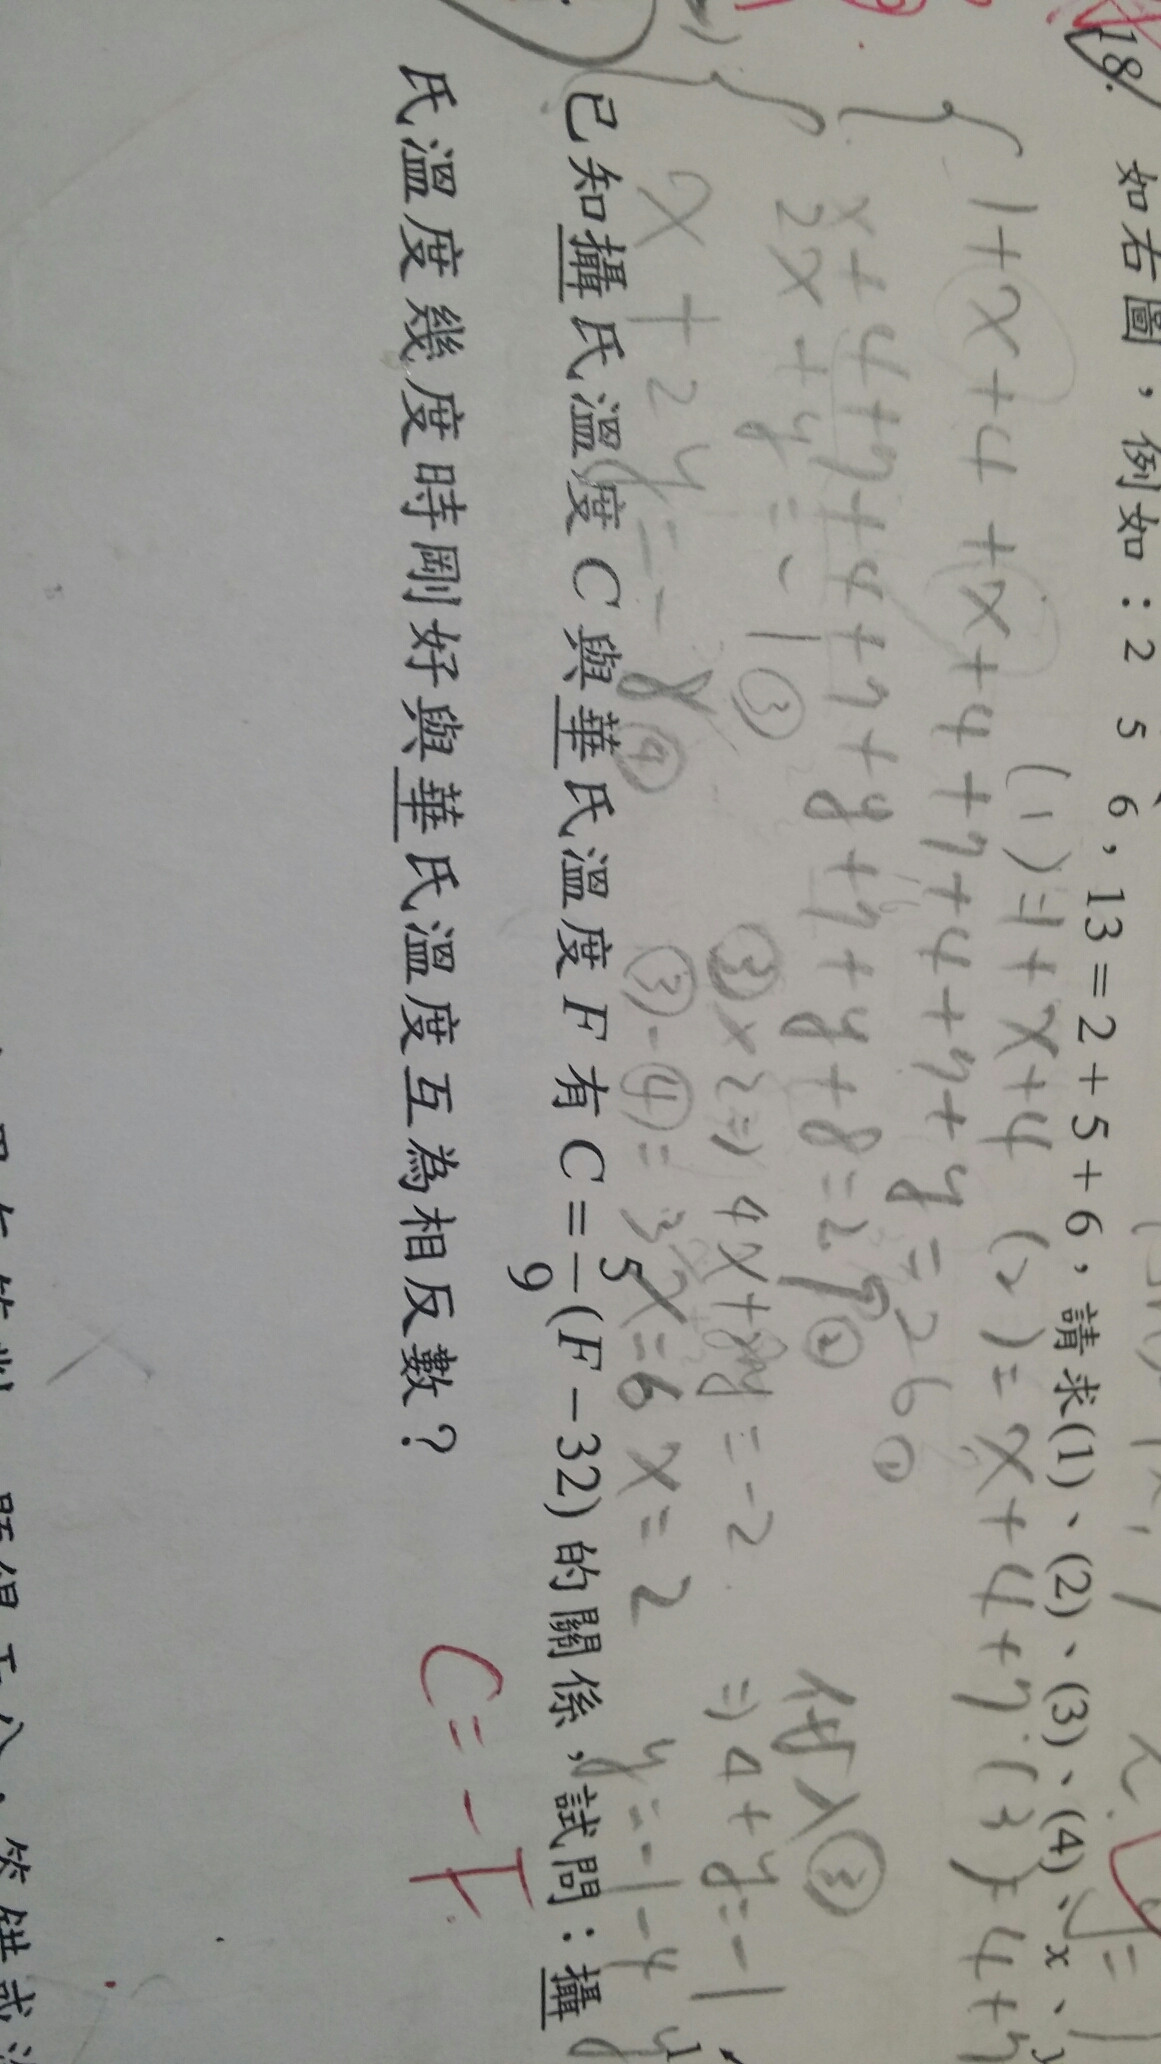 18. 如右圖，例如：2 5 6，13＝2＋5＋6，請求(1)、(2)、(3)、(4)、x、
(1)=1+x+4 (2)=x+4+7 (3)=4+7
1+x+4+x+4+7+4+7+y=26①
x+4+7+4+7+y+7+y+8=29②
2x+y=-1③
x+2y=-8④
③×2⇒4x+2y=-2
③-④=3x=6 x=2
代入③
⇒4+y=-1
y=-1-4
已知攝氏溫度C與華氏溫度F有C＝5/9(F－32)的關係，試問：攝
氏溫度幾度時剛好與華氏溫度互為相反數？
C=-F